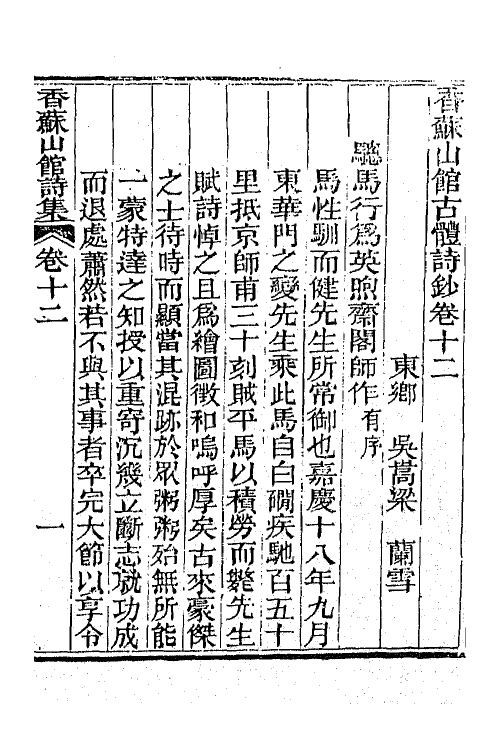 香蘇山館古體詩鈔卷十二
東鄉 吳嵩梁 蘭雪
駞馬行爲英煦齋閣師作有序
馬性馴而健先生所常御也嘉慶十八年九月
東華門之變先生乘此馬自白磵疾馳百五十
里抵京師甫三十刻賊平馬以積勞而斃先生
賦詩悼之且爲繪圖徵和嗚呼厚矣古來豪傑
之士待時而顯當其混跡於眾粥粥殆無所能
一蒙特達之知授以重寄沉幾立斷志就功成
而退處蕭然若不與其事者卒完大節以享令
香蘇山館詩集 卷十二 一